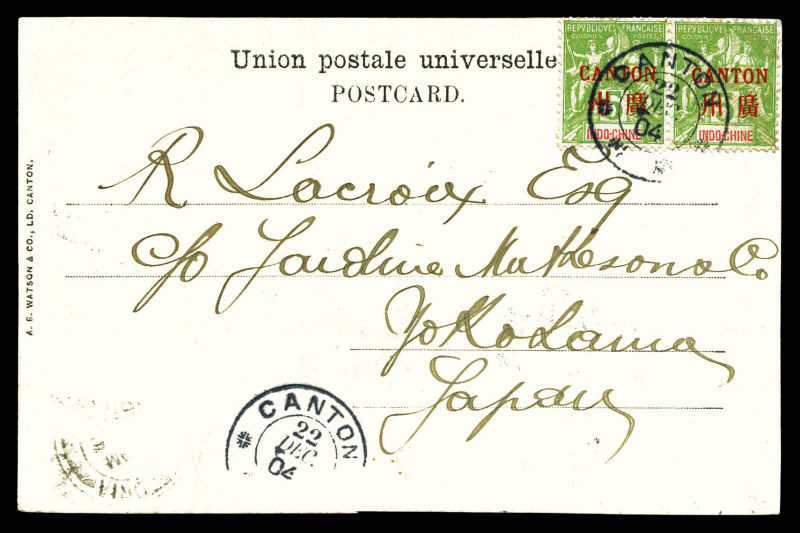 Union postale universelle
POSTCARD.
REPVBLIQUE FRANÇAISE
COLONIES POSTES
CANTON
州 廣
INDO-CHINE
REPVBLIQUE FRANÇAISE
COLONIES POSTES
CANTON
州 廣
INDO-CHINE
CANTON
22
DEC
04
R Lacroix Esq
c/o Jardine Matheson & Co.
Yokohama
Japan
A. S. WATSON & CO., LD. CANTON.
CANTON
22
DEC.
04